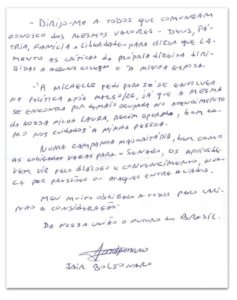 - DIRIJO-ME A TODOS QUE COMUNGAM
CONOSCO DOS MESMOS VALORES - DEUS, PÁ-
TRIA, FAMÍLIA E LIBERDADE - PARA DIZER QUE LA-
MENTO AS CRÍTICAS DA PRÓPRIA DIREITA DIRI-
GIDAS A ALGUNS COLEGAS E A MINHA ESPOSA.
- A MICHELLE PEDI PARA SÓ SE ENVOLVER
NA POLÍTICA APÓS MARÇO/26, JÁ QUE A MESMA
SE ENCONTRA POR DEMAIS OCUPADA NO ATENDIMENTO
DA NOSSA FILHA LAURA, RECÉM OPERADA, BEM CO-
MO NOS CUIDADOS À MINHA PESSOA.
NUMA CAMPANHA MAJORITÁRIA, BEM COMO
AS COBIÇADAS VAGAS PARA O SENADO, OS APOIOS DE-
VEM VIR PELO DIÁLOGO E CONVENCIMENTO, NUN-
CA POR PRESSÕES OU ATAQUES ENTRE ALIADOS.
MEU MUITO OBRIGADO A TODOS PELO CARI-
NHO E CONSIDERAÇÃO
DA NOSSA UNIÃO O FUTURO DO BRASIL.
JAIR BOLSONARO